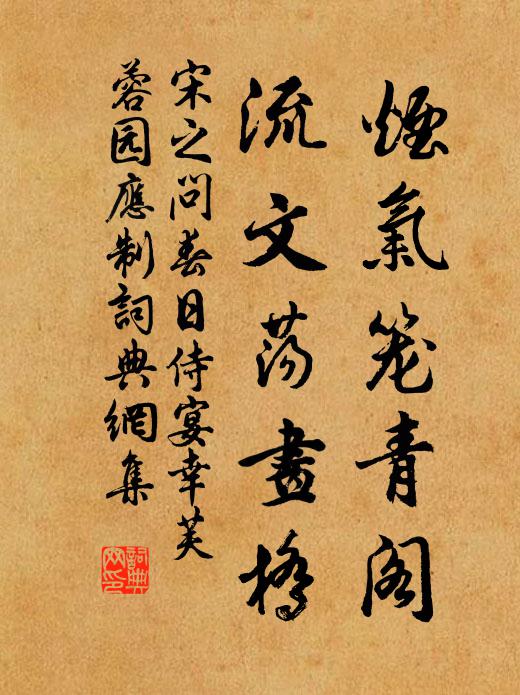 煙氣笼青阁
流文荡畫橋
宋之問春日侍宴幸芙
蓉园應制詞典網集
詞典網印